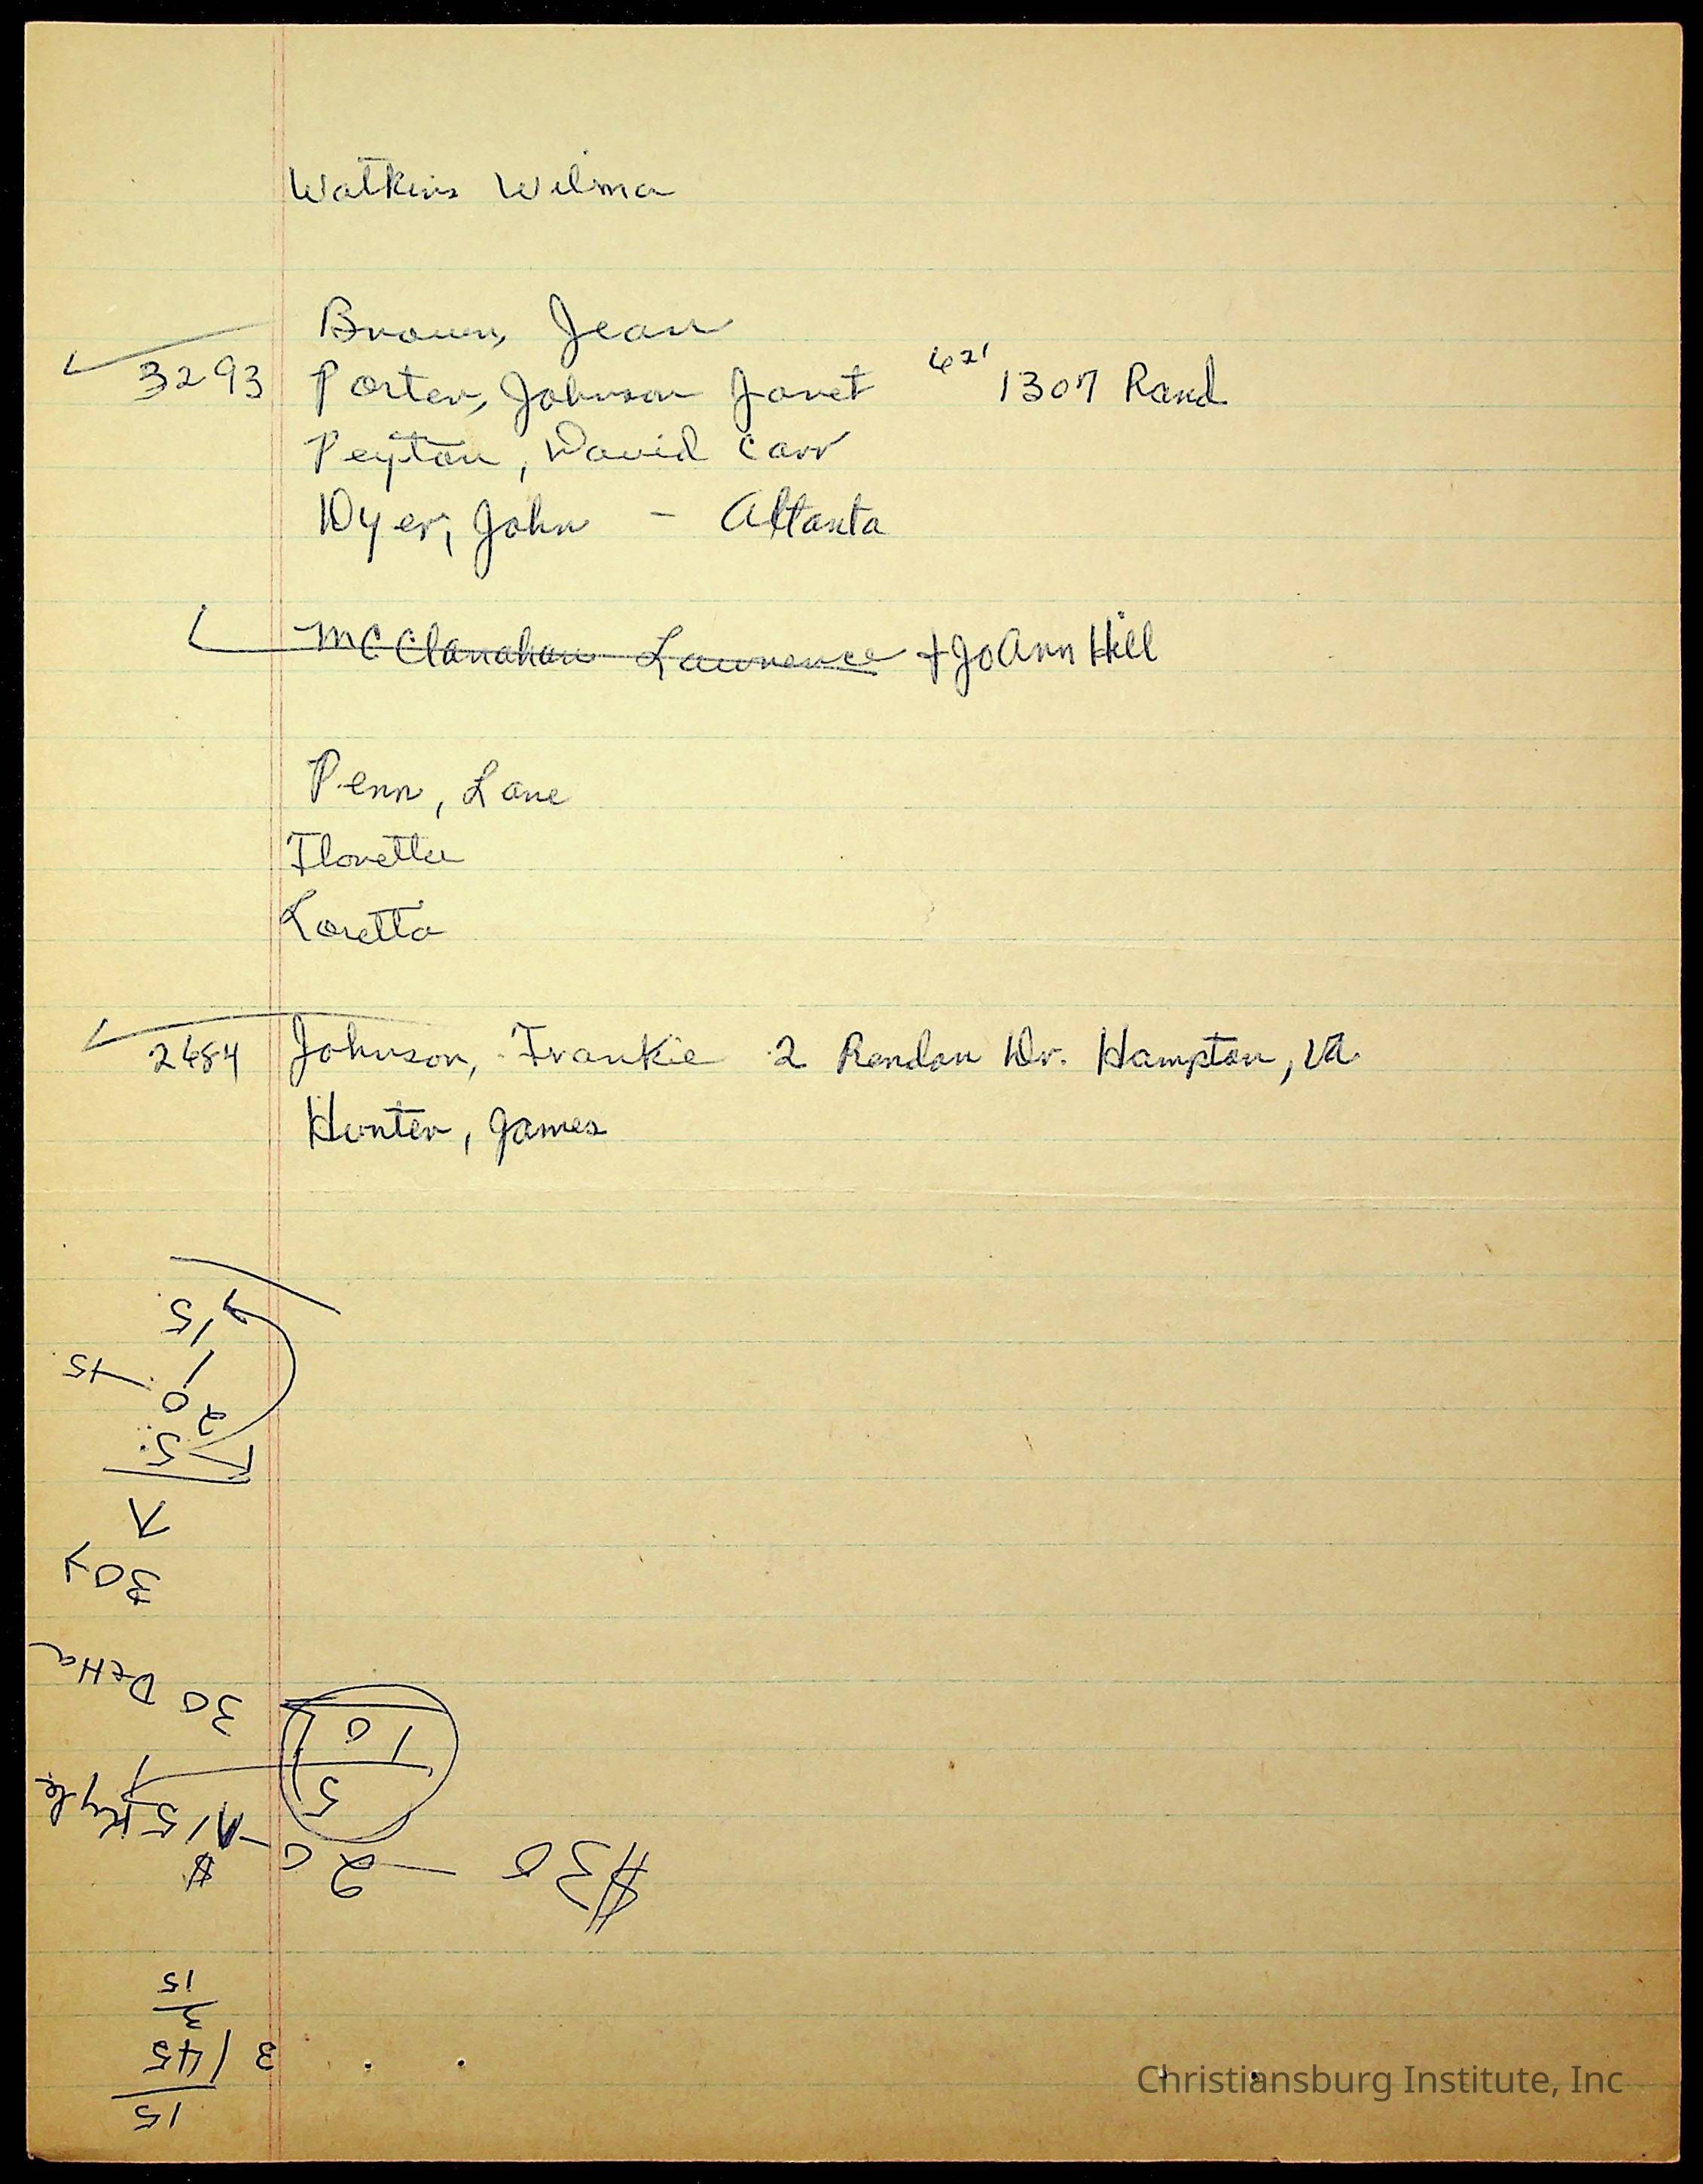 Watkins Wilma
Brown, Jean
3293 Porter, Johnson Janet 621 1307 Rand
Peyton, David Carr
Dyer, John - Altanta
McClanahan Lawrence + JoAnn Hill
Penn, Lane
Floretta
Loretta
2484 Johnson, Frankie 2 Rendon Dr. Hampton, VA
Hunter, James
15
1
45
20
5
30
30
10
5
15 Kyle
$
20 - $30
15
3
3 / 45
15
Christiansburg Institute, Inc